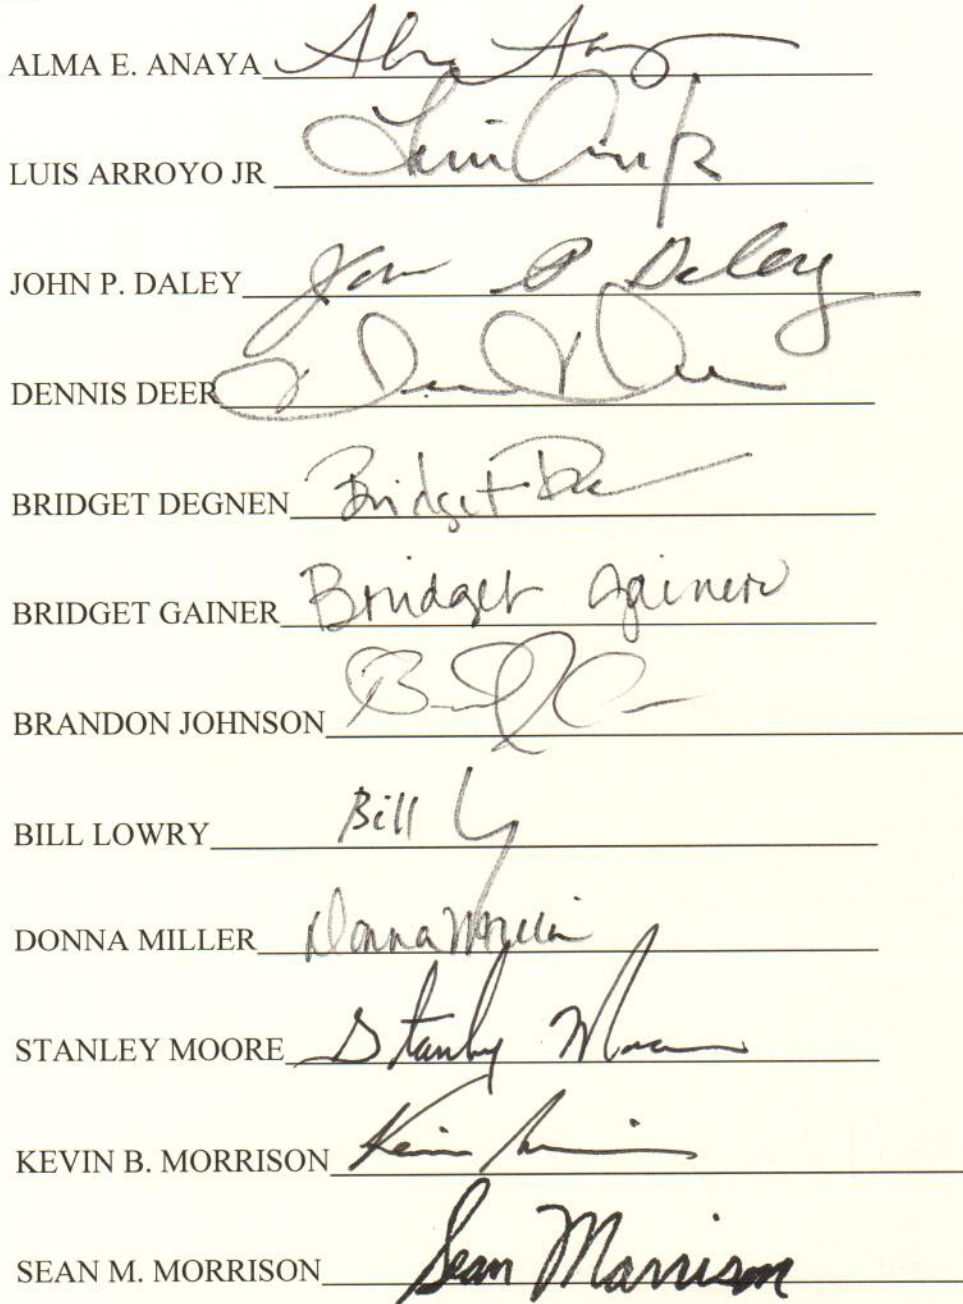 ALMA E. ANAYA Alma Anaya
LUIS ARROYO JR
JOHN P. DALEY John P Daley
DENNIS DEER
BRIDGET DEGNEN Bridget
BRIDGET GAINER Bridget Gainer
BRANDON JOHNSON
BILL LOWRY Bill
DONNA MILLER Donna Miller
STANLEY MOORE Stanley Moore
KEVIN B. MORRISON Kevin
SEAN M. MORRISON Sean Morrison